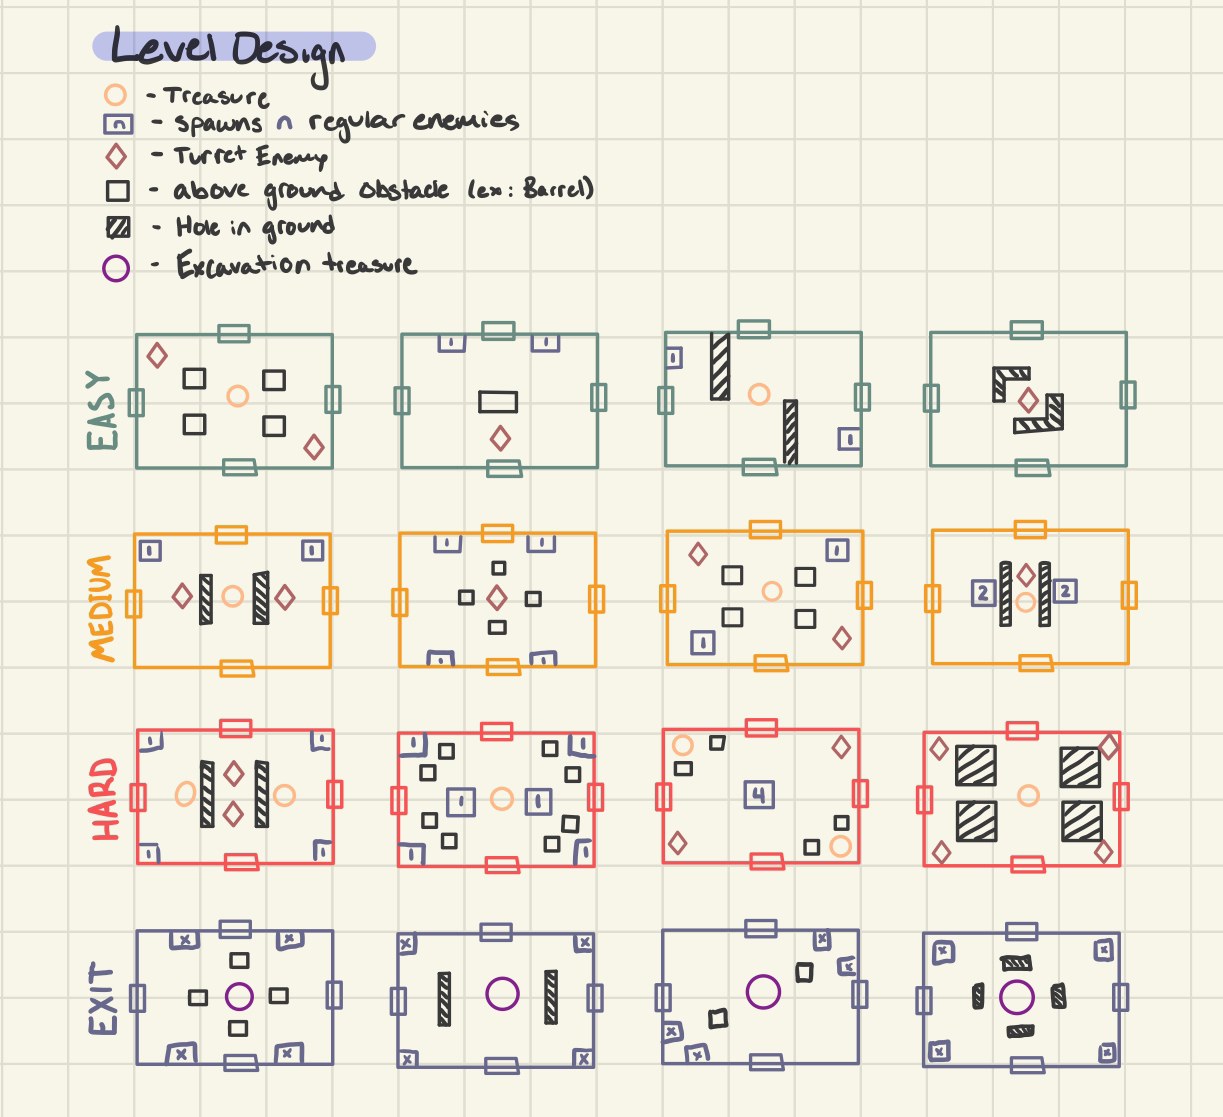 Level Design
- Treasure
n - spawns n regular enemies
- Turret Enemy
- above ground obstacle (ex: Barrel)
- Hole in ground
- Excavation treasure
EASY
1 1
1 1
MEDIUM
1 1
1 1
1 1
1 1
2 2
HARD
1 1
1 1
1 1
1 1
1 1
4
EXIT
x x
x x
x x
x x
x x
x x
x x
x x